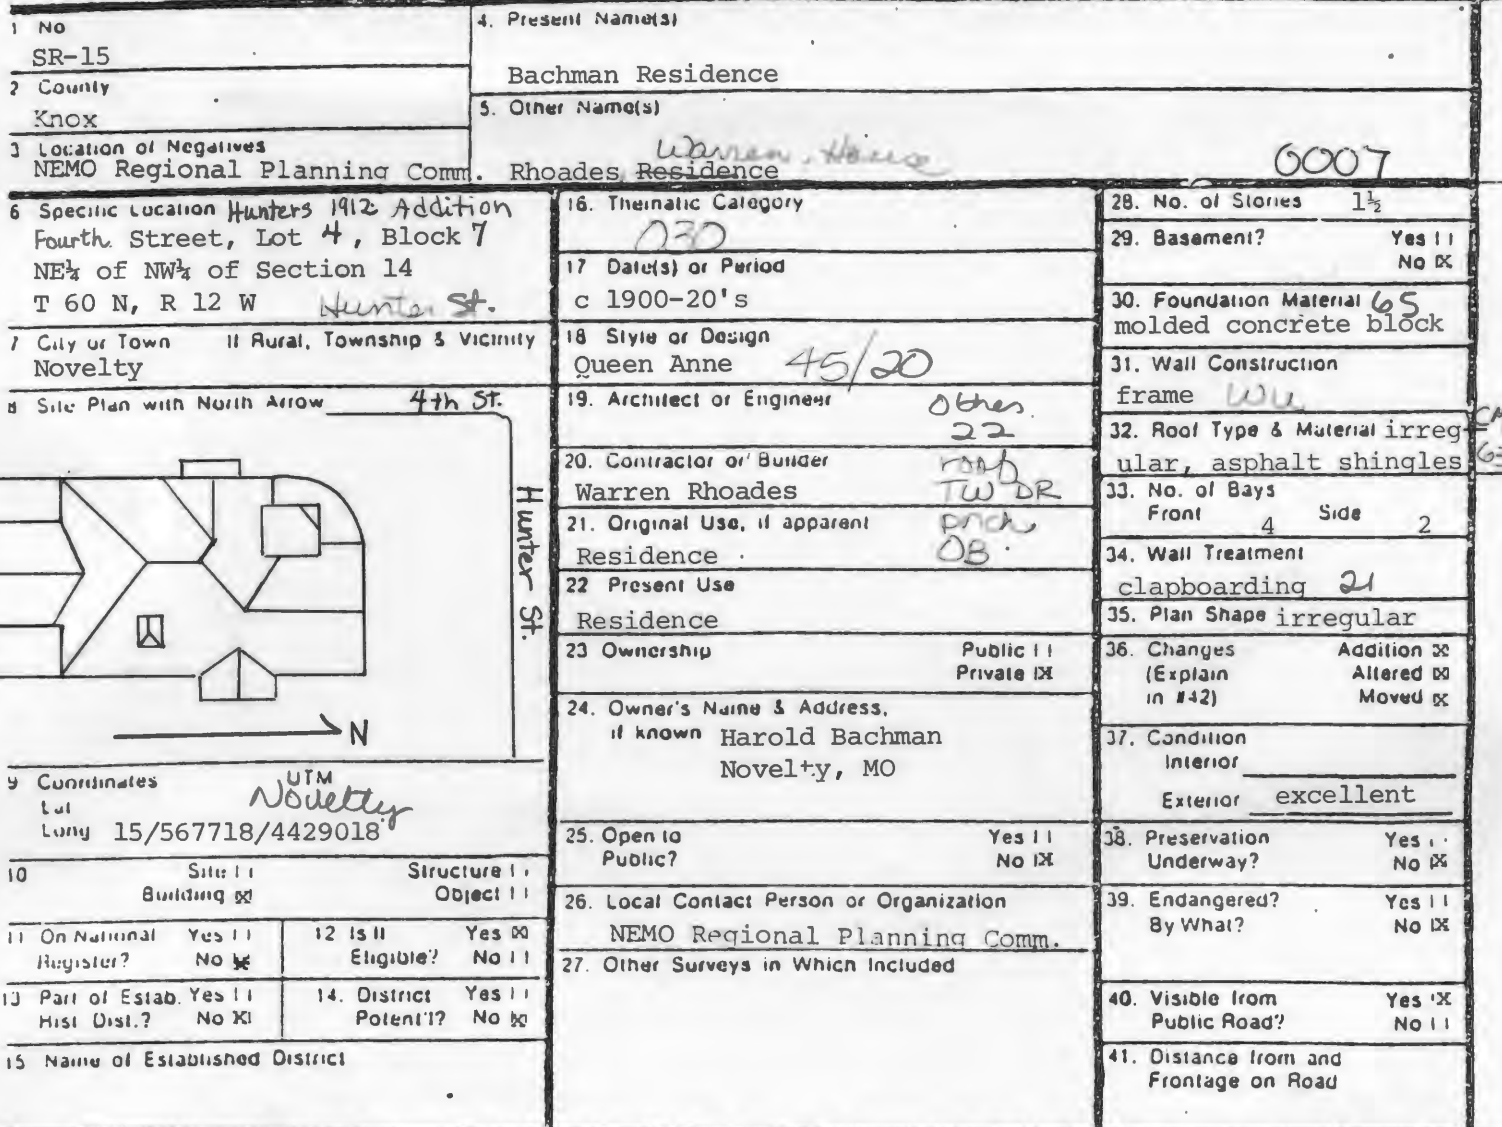 1 No
SR-15
2 County
Knox
3 Location of Negatives
NEMO Regional Planning Comm.
4. Present Name(s)
Bachman Residence
5. Other Name(s)
Warren House
Rhoades Residence
0007
6 Specific Location Hunters 1912 Addition
Fourth Street, Lot 4, Block 7
NE¼ of NW¼ of Section 14
T 60 N, R 12 W Hunter St.
7 City or Town If Rural, Township & Vicinity
Novelty
8 Site Plan with North Arrow
4th St.
Hunter St.
N
9 Coordinates UTM
Lat Novelty
Long 15/567718/4429018
10 Site
Structure
Building ☒
Object
11 On National Register? Yes
No ☒
12 Is It Eligible? Yes ☒
No
13 Part of Estab. Hist Dist.? Yes
No ☒
14. District Potent'l? Yes
No ☒
15 Name of Established District
16. Thematic Category
030
17 Date(s) or Period
c 1900-20's
18 Style or Design
Queen Anne 45/20
19. Architect or Engineer
Other
22
20. Contractor or Builder
roof
Warren Rhoades
TW DR
21. Original Use, if apparent
porch
Residence
OB
22 Present Use
Residence
23 Ownership Public
Private ☒
24. Owner's Name & Address,
if known Harold Bachman
Novelty, MO
25. Open to Public? Yes
No ☒
26. Local Contact Person or Organization
NEMO Regional Planning Comm.
27. Other Surveys in Which Included
28. No. of Stories 1½
29. Basement? Yes
No ☒
30. Foundation Material 65
molded concrete block
31. Wall Construction
frame
32. Roof Type & Material irreg-
ular, asphalt shingles
33. No. of Bays
Front 4 Side 2
34. Wall Treatment
clapboarding 21
35. Plan Shape irregular
36. Changes Addition ☒
(Explain Altered ☒
in #42) Moved ☒
37. Condition
Interior
Exterior excellent
38. Preservation Underway? Yes
No ☒
39. Endangered? Yes
By What? No ☒
40. Visible from Public Road? Yes ☒
No
41. Distance from and
Frontage on Road